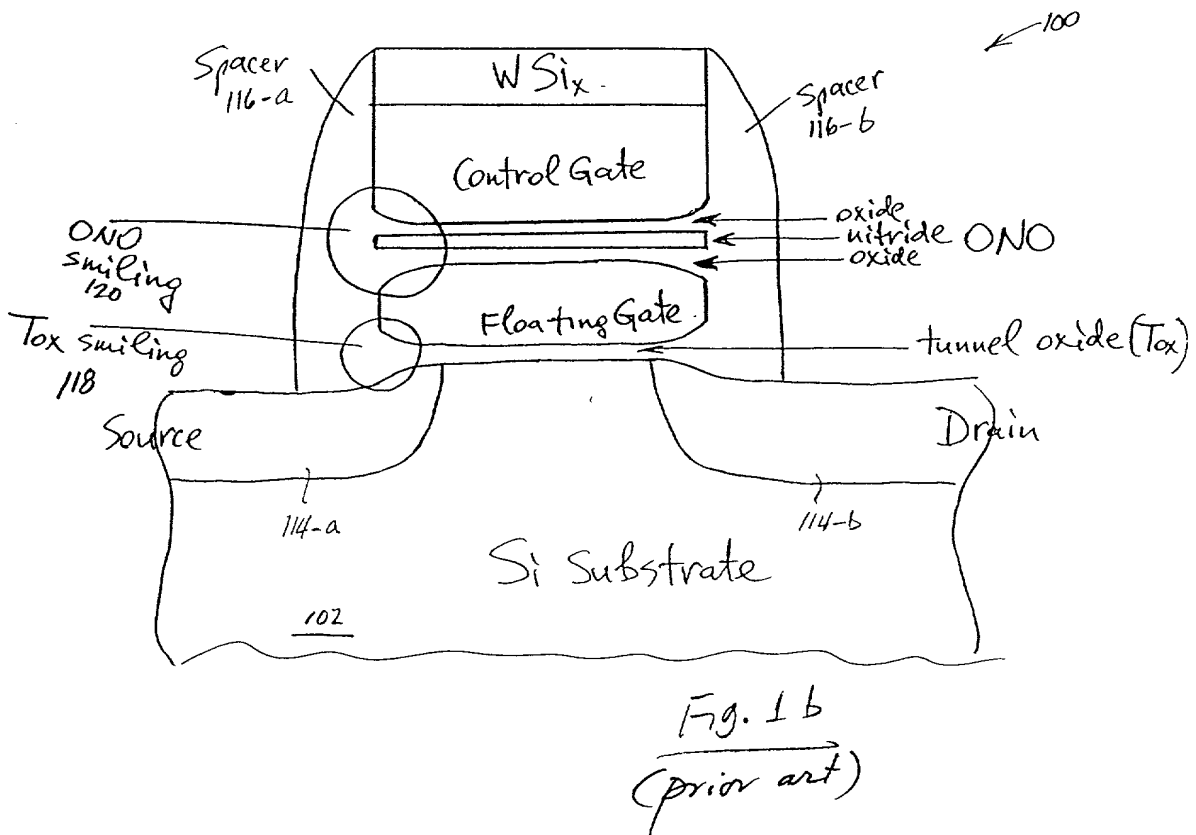 100
Spacer
116-a
WSix.
Spacer
116-b
Control Gate
oxide
nitride ONO
oxide
ONO
smiling
120
Floating Gate
Tox smiling
118
tunnel oxide (Tox)
Source
Drain
114-a
114-b
Si Substrate
102
Fig. 1b
(prior art)